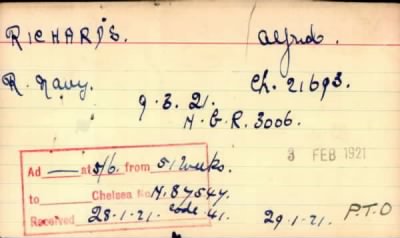 RICHARDS. Alfred.
R. Navy. Ch. 21693.
9.3.21.
N.G.R. 3006.
3 FEB 1921
Ad — at 5/6. from 51 weeks.
to Chelsea No N.87547.
Received 28.1.21. code 41. 29.1.21. P.T.O